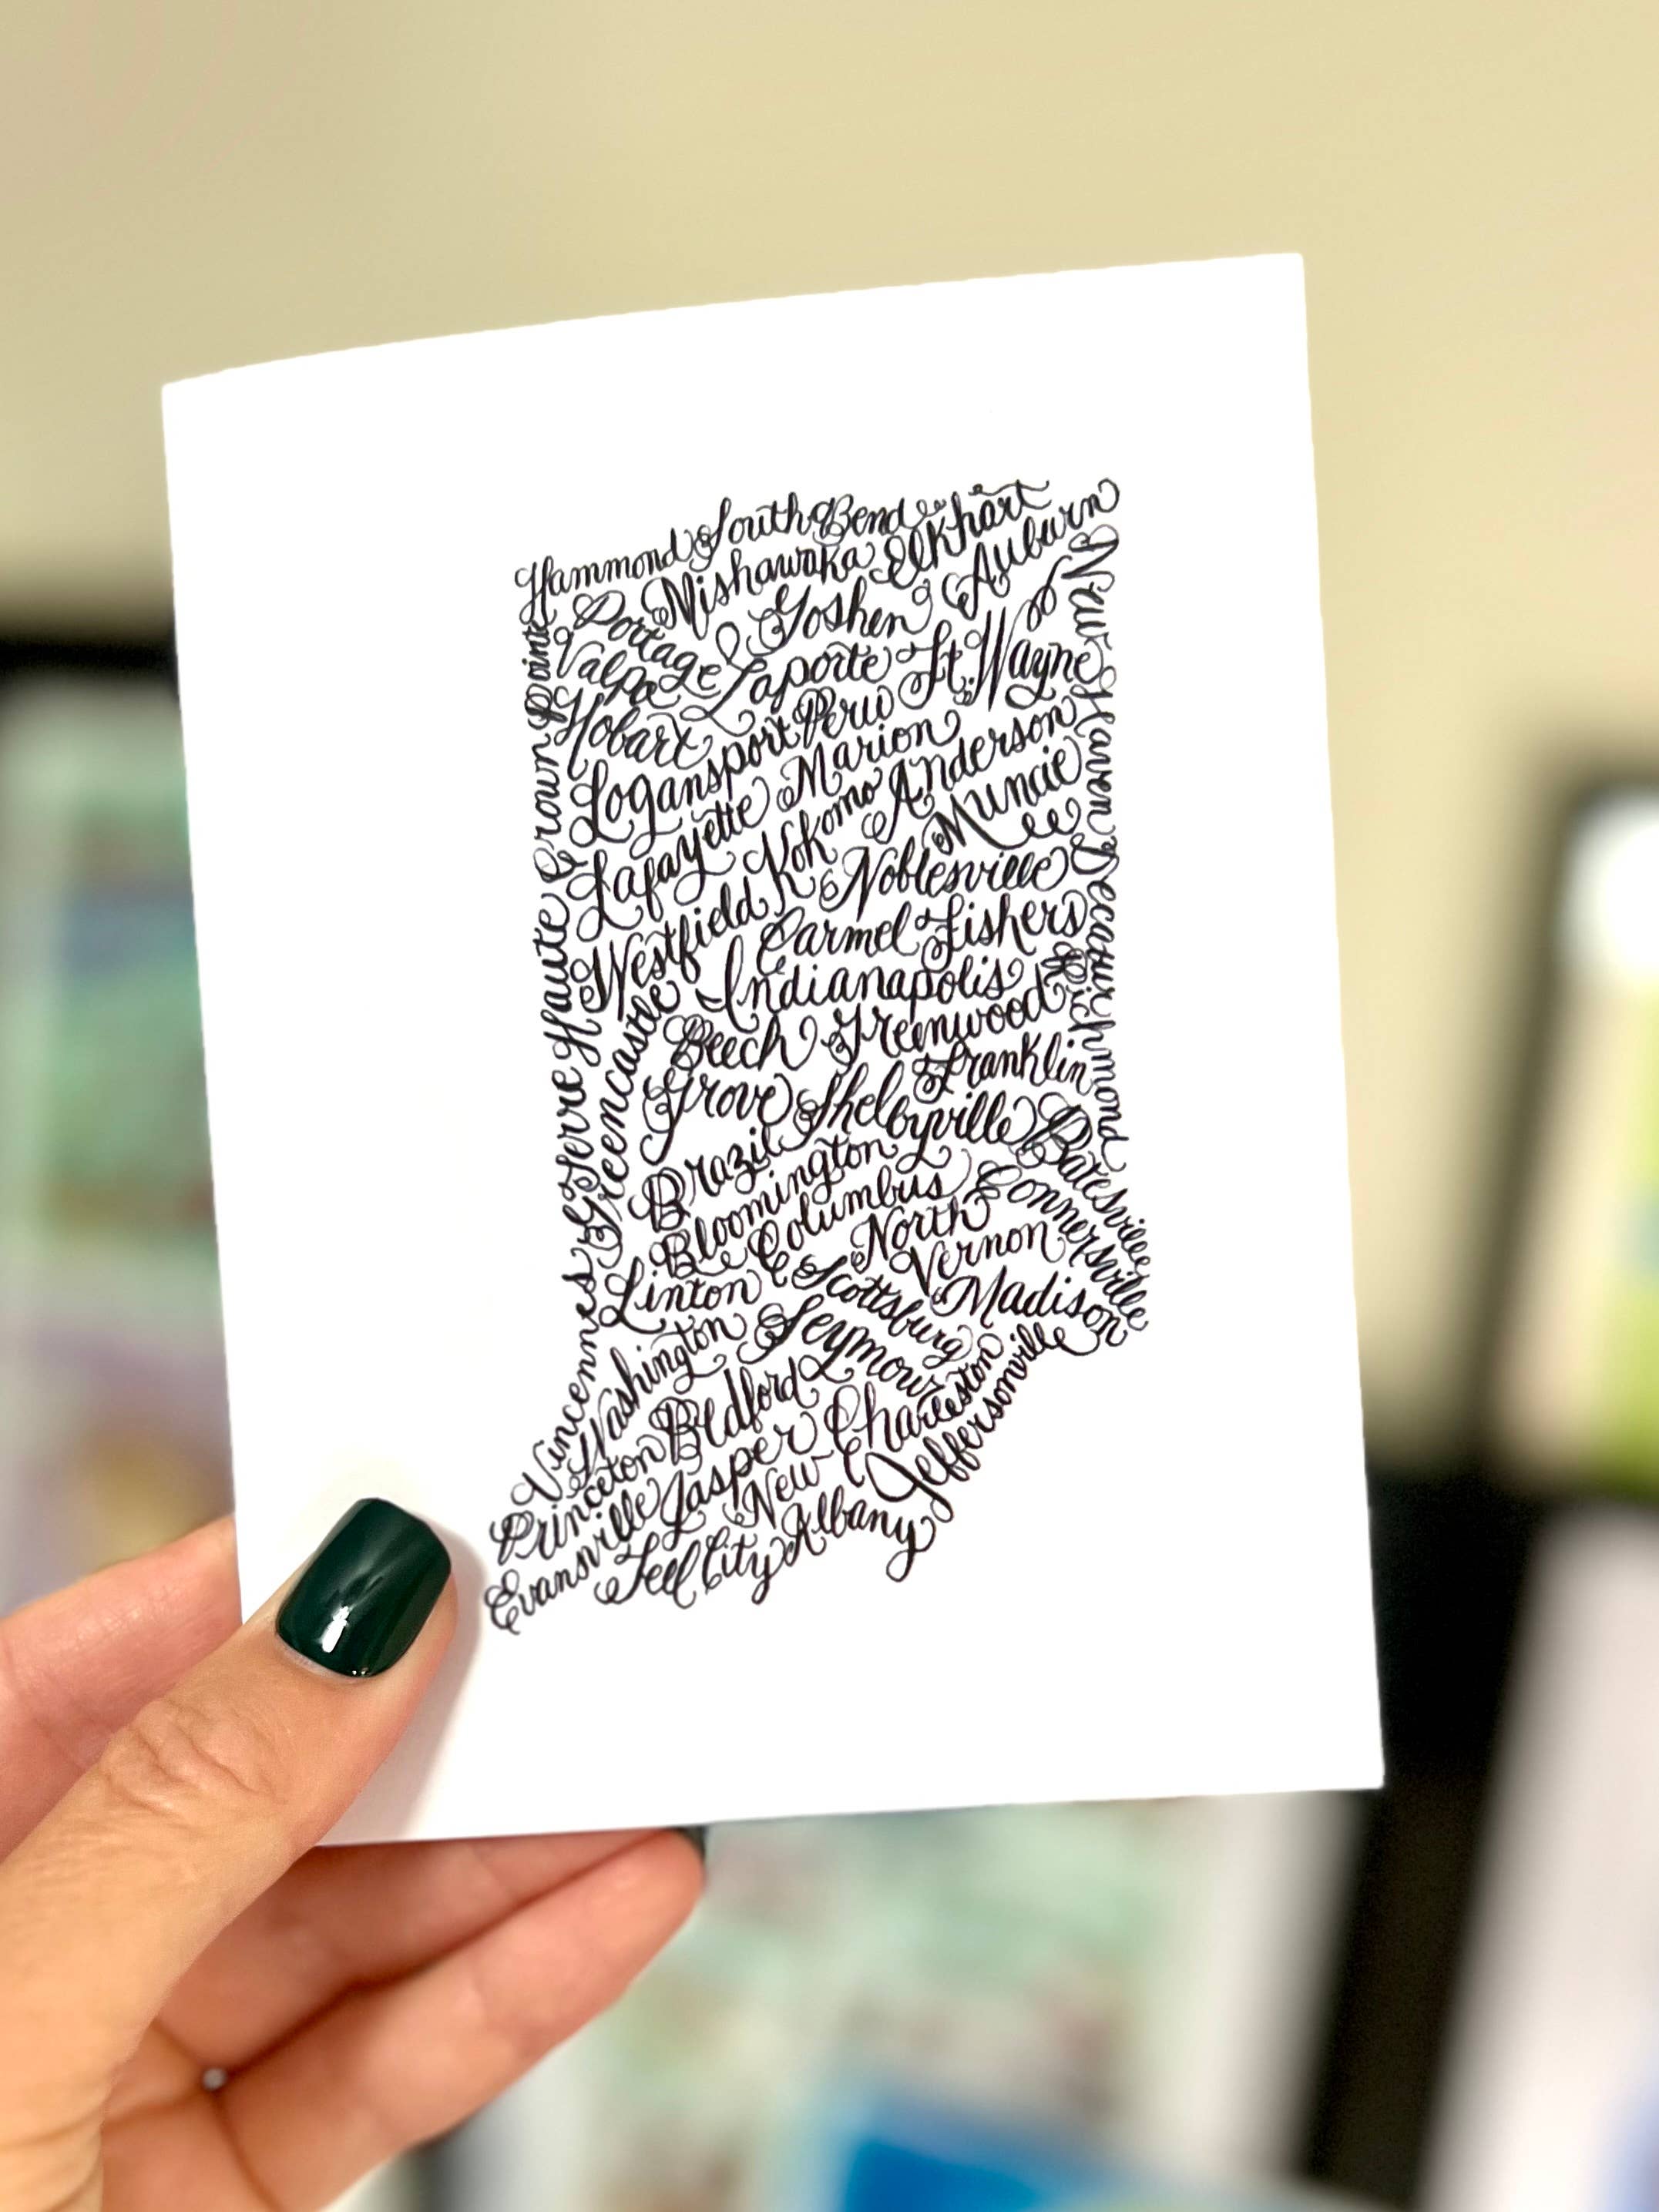 Hammond South Bend
Mishawaka Elkhart
Portage Goshen Auburn
Valpo Laporte Ft. Wayne
Hobart
Logansport Peru
Lafayette Marion
Westfield Kokomo Anderson
Muncie
Noblesville
Carmel Fishers
Indianapolis
Beech Greenwood
Grove Shelbyville Franklin
Brazil
Bloomington
Linton Columbus
North
Vernon
Scottsburg Madison
Washington Seymour
Princeton Bedford
Evansville Jasper Charleston
Tell City New
Albany
Jeffersonville
Crown Point
Terre Haute
Greencastle
Vincennes
New Haven
Decatur
Richmond
Batesville
Connersville